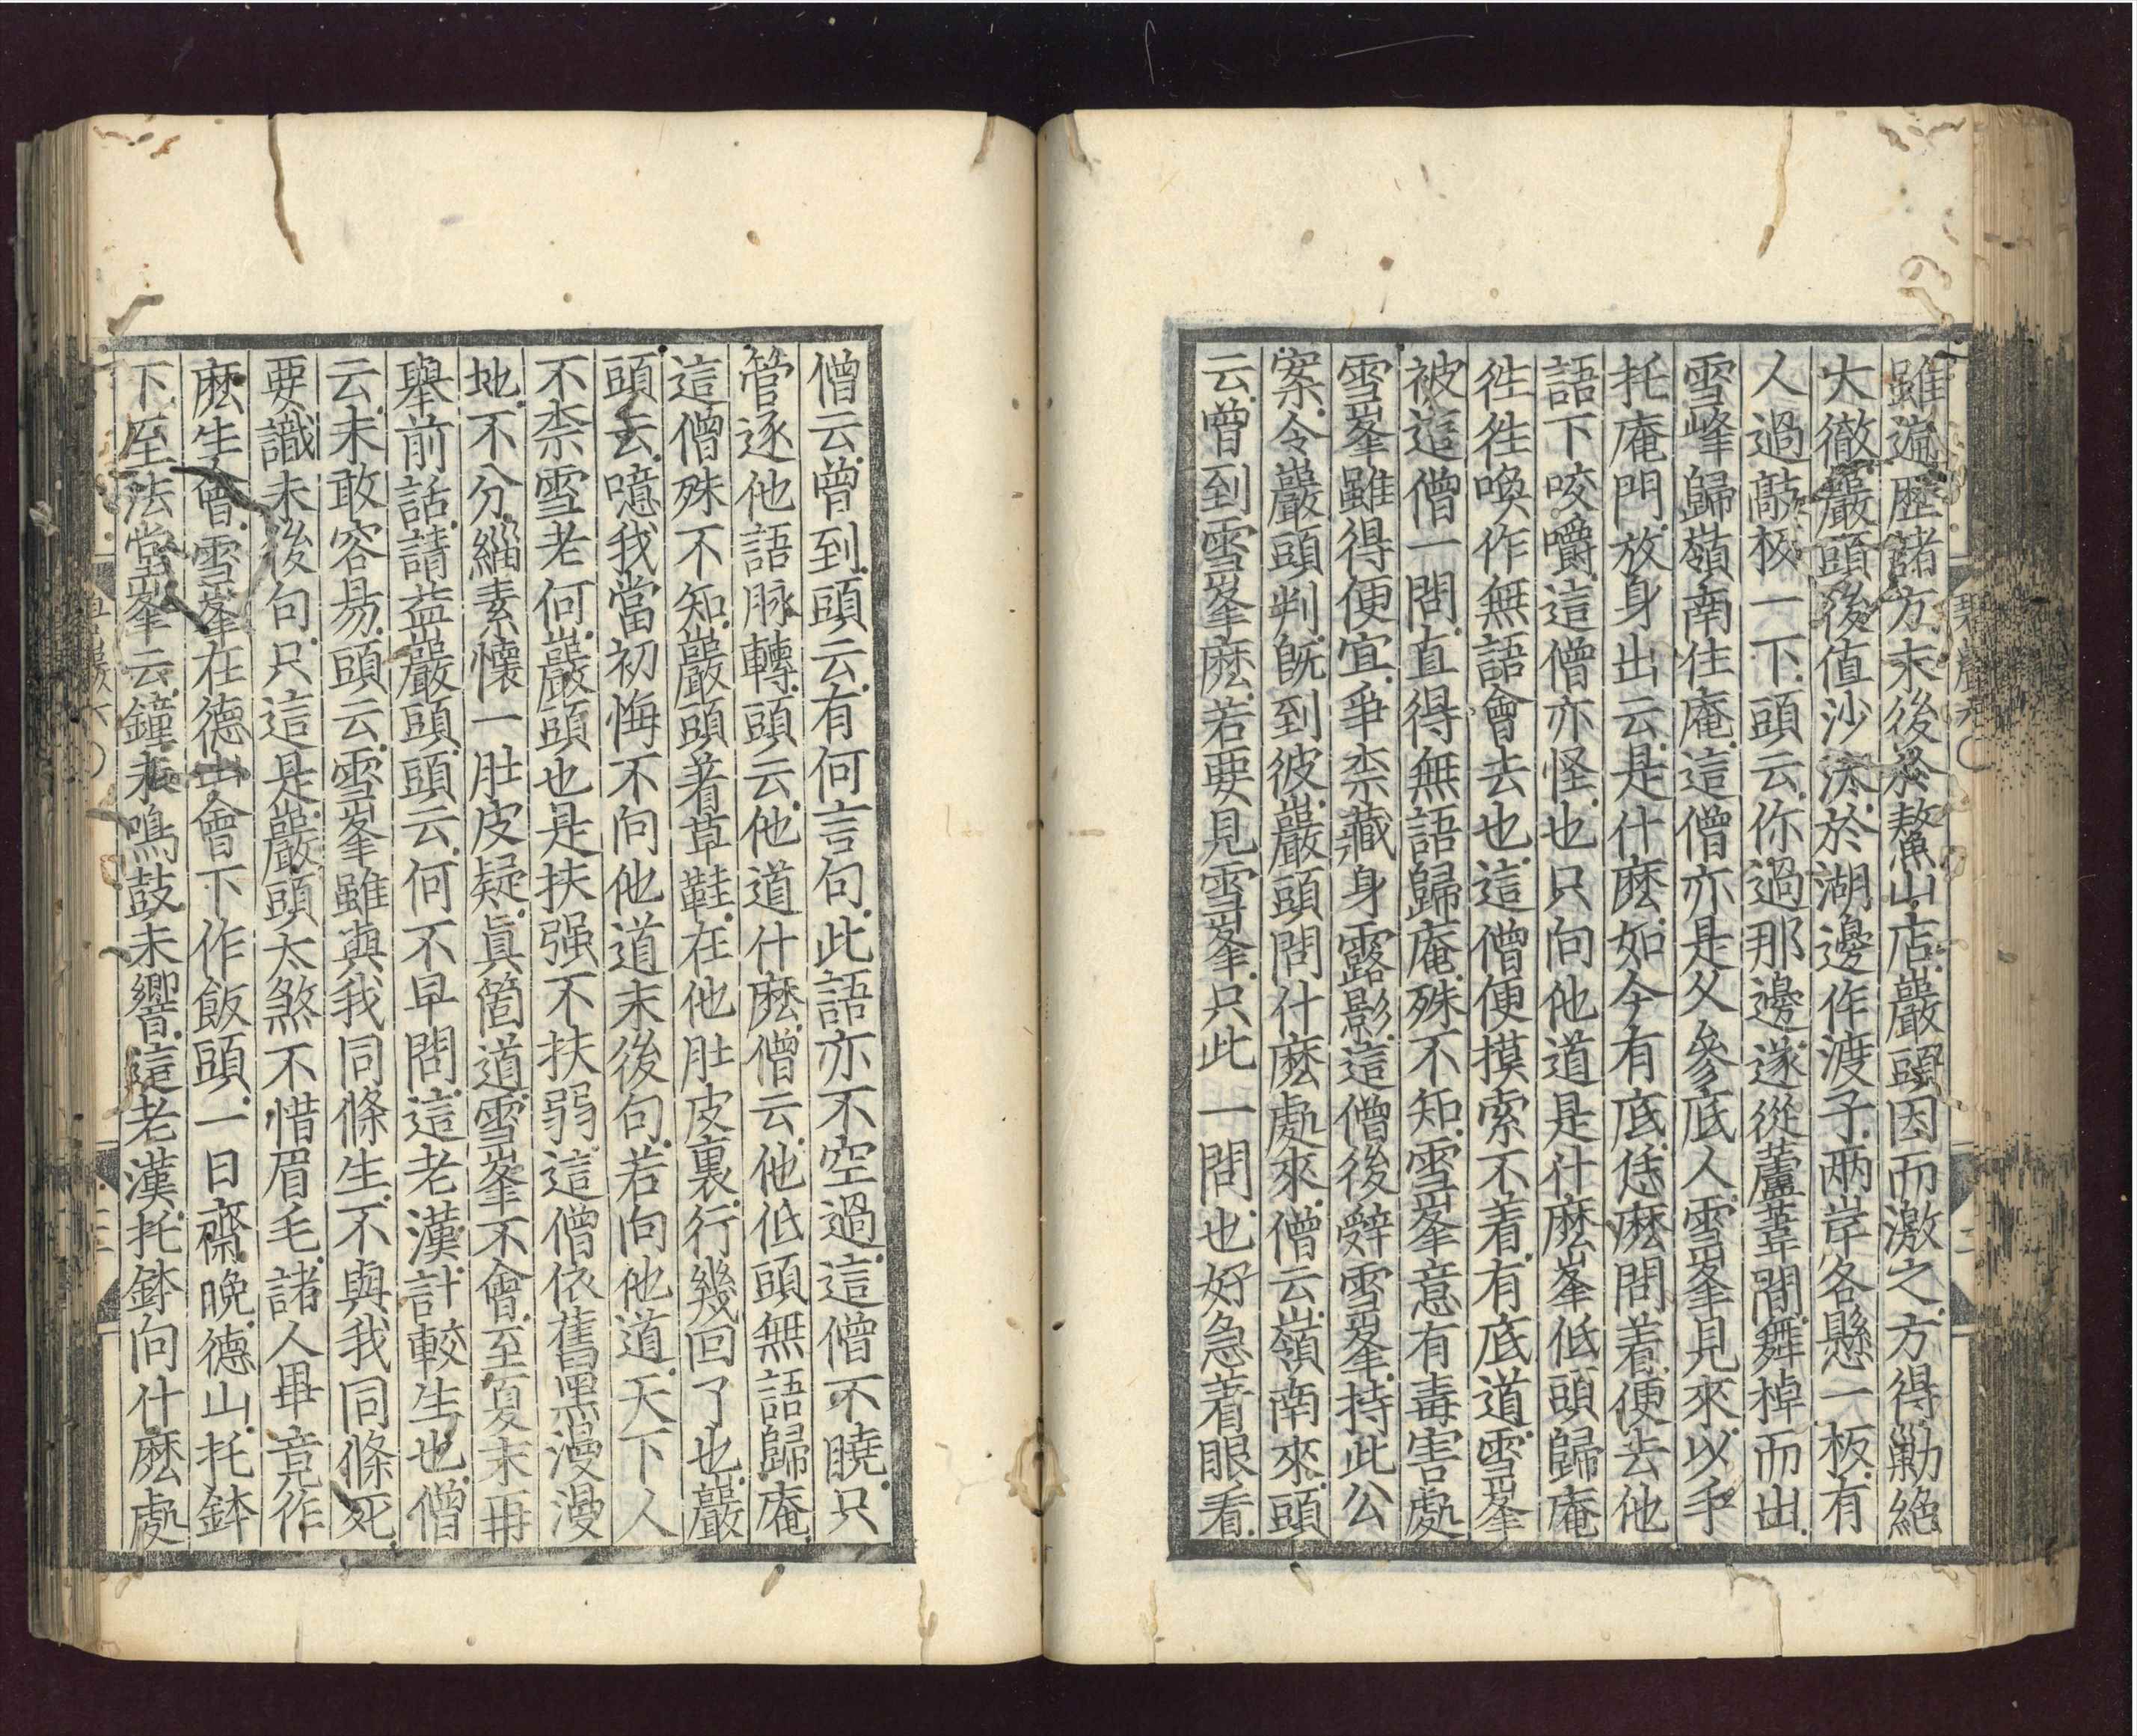 雖遍歷諸方末後於鰲山店巖頭因而激之方得勦絶
大徹巖頭後値沙汰於湖邊作渡子兩岸各懸一板有
人過敲板一下頭云你過那邊遂從蘆葦間舞棹而出
雪峰歸嶺南住庵這僧亦是久參底人雪峯見來以手
托庵門放身出云是什麽如今有底恁麽問着便去他
語下咬嚼這僧亦怪也只向他道是什麽峯低頭歸庵
徃徃喚作無語會去也這僧便摸索不着有底道雪峯
被這僧一問直得無語歸庵殊不知雪峯意有毒害處
雪峯雖得便宜爭柰藏身露影這僧後辭雪峯持此公
案令巖頭判旣到彼巖頭問什麽處來僧云嶺南來頭
云曾到雪峯麽若要見雪峯只此一問也好急着眼看
僧云曾到頭云有何言句此語亦不空過這僧不曉只
管逐他語脉轉頭云他道什麽僧云他低頭無語歸庵
這僧殊不知巖頭着草鞋在他肚皮裏行幾回了也巖
頭云噫我當初悔不向他道末後句若向他道天下人
不柰雪老何巖頭也是扶强不扶弱這僧依舊黑漫漫
地不分緇素懷一肚皮疑眞箇道雪峯不會至夏末再
舉前話請益巖頭頭云何不早問這老漢計較生也僧
云未敢容易頭云雪峯雖與我同條生不與我同條死
要識末後句只這是巖頭太煞不惜眉毛諸人畢竟作
麽生會雪峯在德山會下作飯頭一日齋晩德山托鉢
下至法堂峯云鐘未鳴鼓未響這老漢托鉢向什麽處